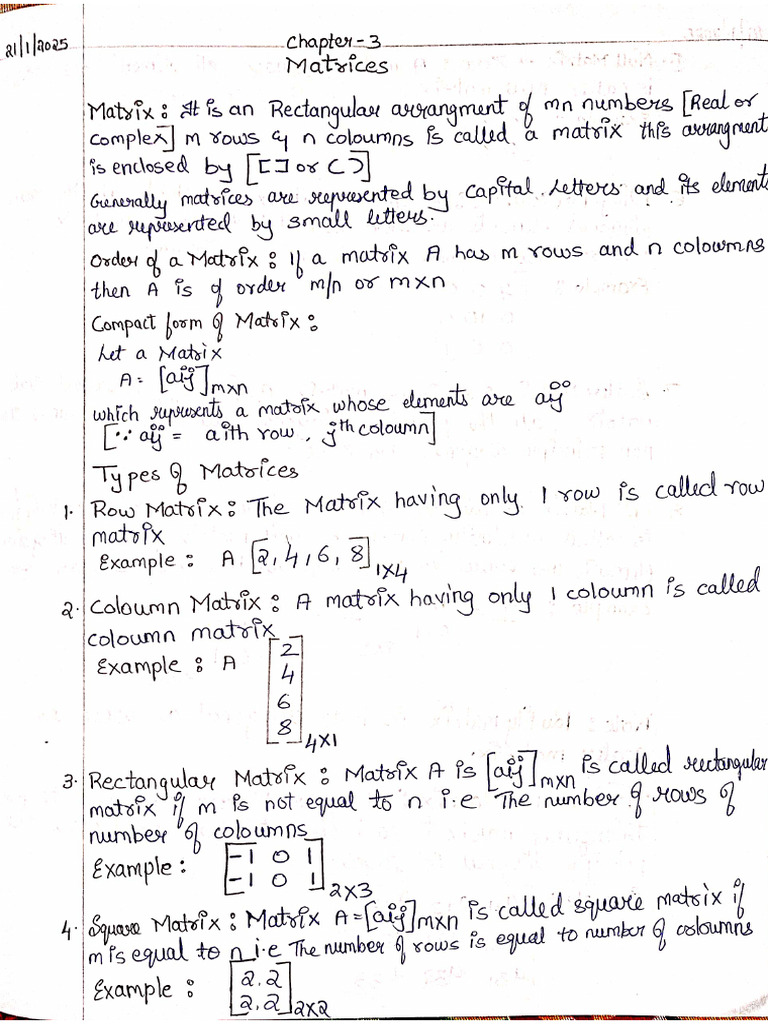 21/1/2025
Chapter-3
Matrices
Matrix: It is an Rectangular arrangment of mn numbers [Real or
complex] m rows & n coloumns is called a matrix this arrangment
is enclosed by [[ ] or ( )]
Generally matrices are represented by Capital Letters and its elements
are represented by small letters.
Order of a Matrix: If a matrix A has m rows and n coloumns
then A is of order m/n or m×n
Compact form of Matrix:
Let a Matrix
A = [aij]m×n
which represents a matrix whose elements are aij
[∵ aij = a ith row, jth coloumn]
Types of Matrices
1. Row Matrix: The Matrix having only 1 row is called row
matrix
Example: A [2, 4, 6, 8] 1×4
2. Coloumn Matrix: A matrix having only 1 coloumn is called
coloumn matrix
Example: A [2
4
6
8] 4×1
3. Rectangular Matrix: Matrix A is [aij]m×n is called rectangular
matrix if m is not equal to n i.e The number of rows of
number of coloumns
Example: [-1 0 1
-1 0 1] 2×3
4. Square Matrix: Matrix A=[aij]m×n is called square matrix if
m is equal to n i.e The number of rows is equal to number of coloumns
Example: [2.2
2.2] 2×2